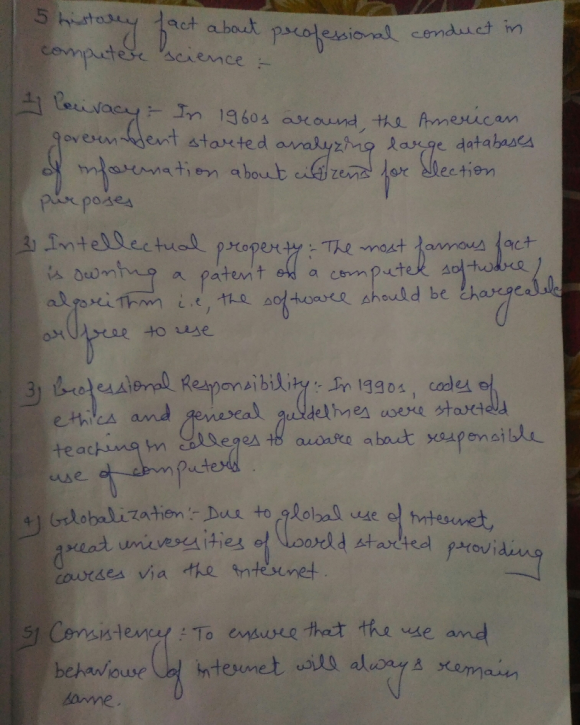 5 history fact about professional conduct in
computer science :-
1) Privacy :- In 1960s around, the American
government started analyzing large databases
of information about citizens for election
purposes
2) Intellectual property :- The most famous fact
is owning a patent on a computer software /
algorithm i.e, the software should be chargeable
or free to use
3) Professional Responsibility :- In 1990s, codes of
ethics and general guidelines were started
teaching in colleges to aware about responsible
use of computers.
4) Globalization :- Due to global use of internet,
great universities of world started providing
courses via the internet.
5) Consistency : To ensure that the use and
behaviour of internet will always remain
same.